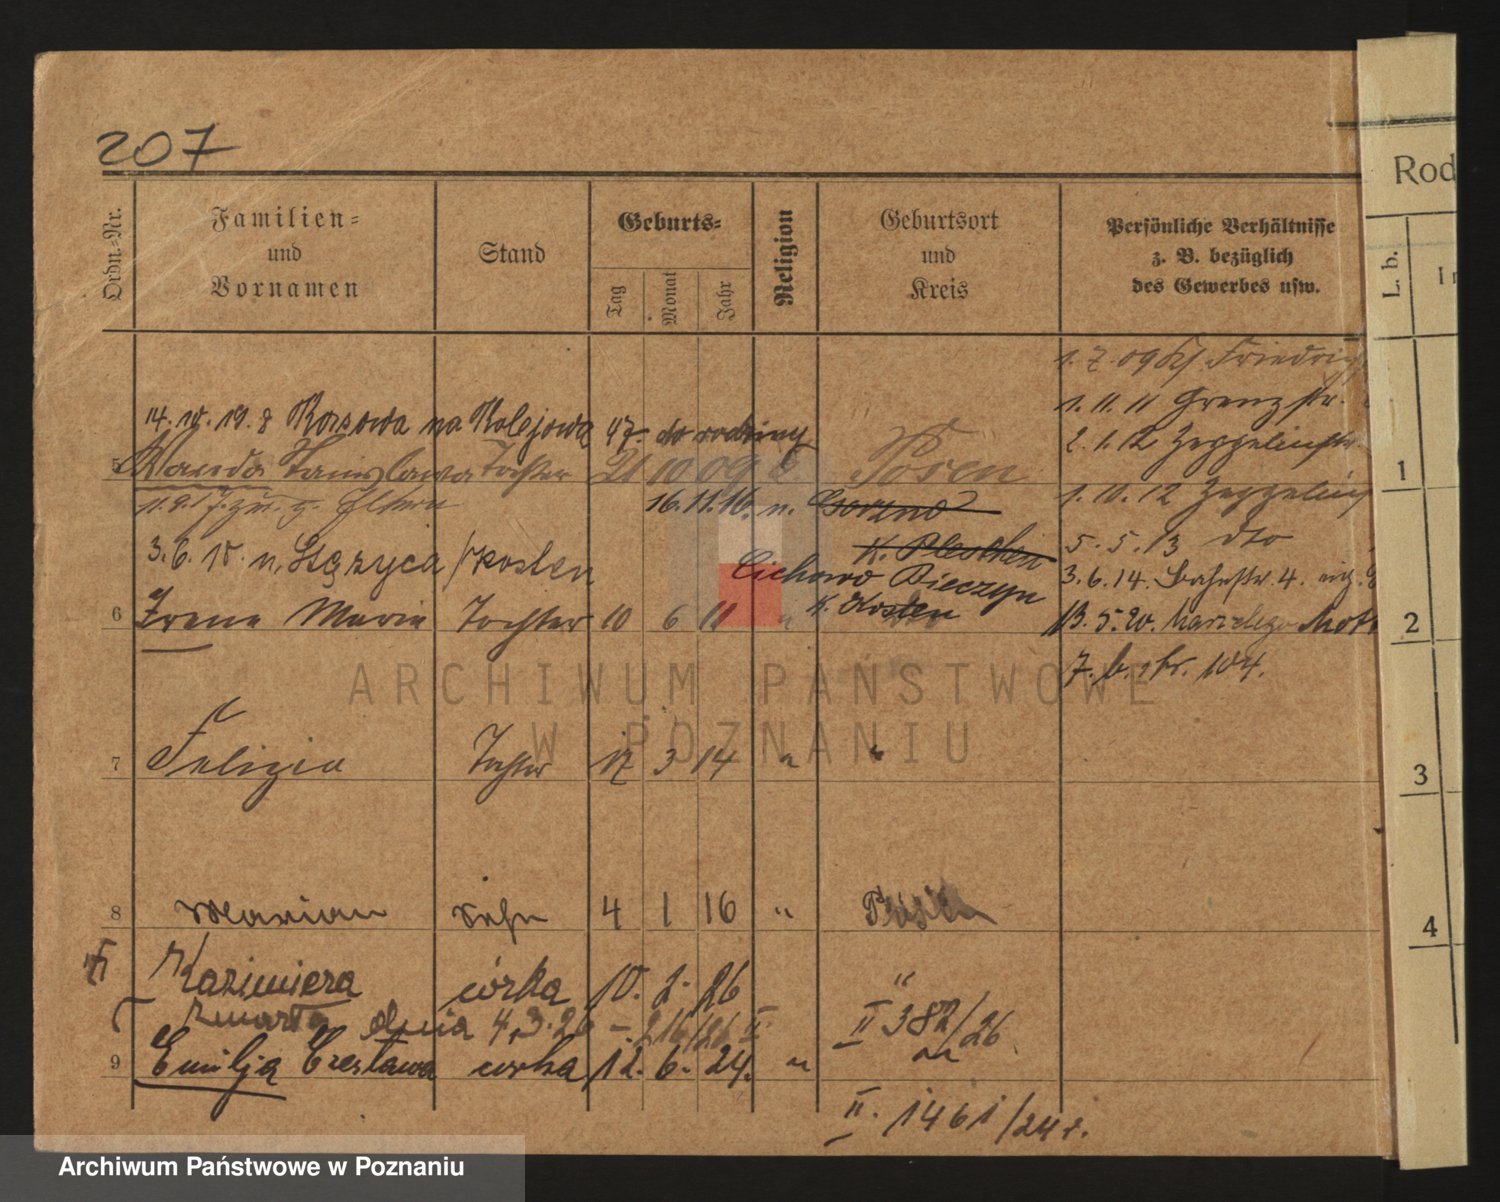 207
Ordn.-Nr.
Familien-
und
Vornamen
Stand
Geburts-
Tag
Monat
Jahr
Religion
Geburtsort
und
Kreis
Persönliche Verhältnisse
z. B. bezüglich
des Gewerbes usw.
Rod
L. b.
1. 7. 09
1. 11. 11 Grenzstr.
14. 10. 19. 8 na Kolejową 47 do rodziny
2. 1. 12 Zeppelinstr
5 Wanda Stanislawa Tochter 21 10 09 k. Posen
1
1. 9. 17. zu g. Eltern
16. 11. 16. n. Gorzno
1. 10. 12 Zeppelinst
K. Pleschen
5. 5. 13 dto
3. 6. 18. n. /Kosten
Cichowo Bieczyn
3. 6. 14. Bahnstr. 4.
6 Irene Marie Tochter 10 6 11 " K. Kosten
13. 5. 20.
2
7. 6. 104.
7 Felizia Tochter 17 3 14 " "
3
8 Marian Sohn 4 1 16 " Posen
4
Kazimiera córka 10. 2. 26 "
zmarła dnia 4. 3. 26 – 216/26 II.
II 382/26
9 Emilja Czesława corka 12. 6. 24. " "
II. 1461/24 r.
ARCHIWUM PAŃSTWOWE
W POZNANIU
Archiwum Państwowe w Poznaniu